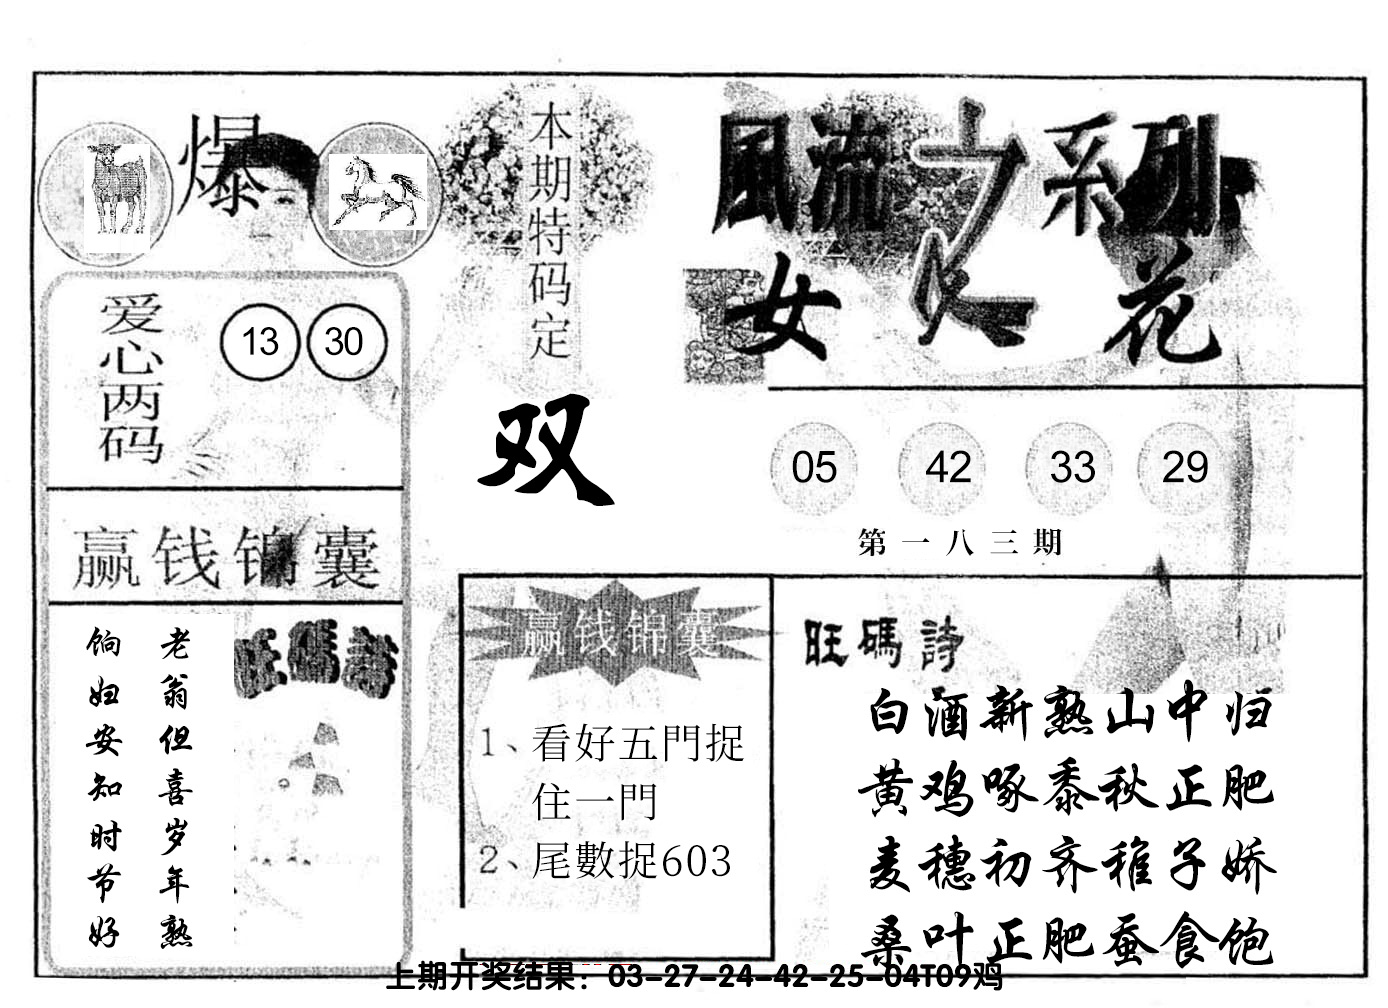 爆
本期特码定
双
風流之系列
女人花
爱心两码
13 30
05 42 33 29
第一八三期
赢钱锦囊
老翁但喜岁年熟
饷妇安知时节好
旺碼詩
赢钱锦囊
1、看好五門捉
住一門
2、尾數捉603
旺碼詩
白酒新熟山中归
黄鸡啄黍秋正肥
麦穗初齐稚子娇
桑叶正肥蚕食饱
上期开奖结果：03-27-24-42-25-04T09鸡